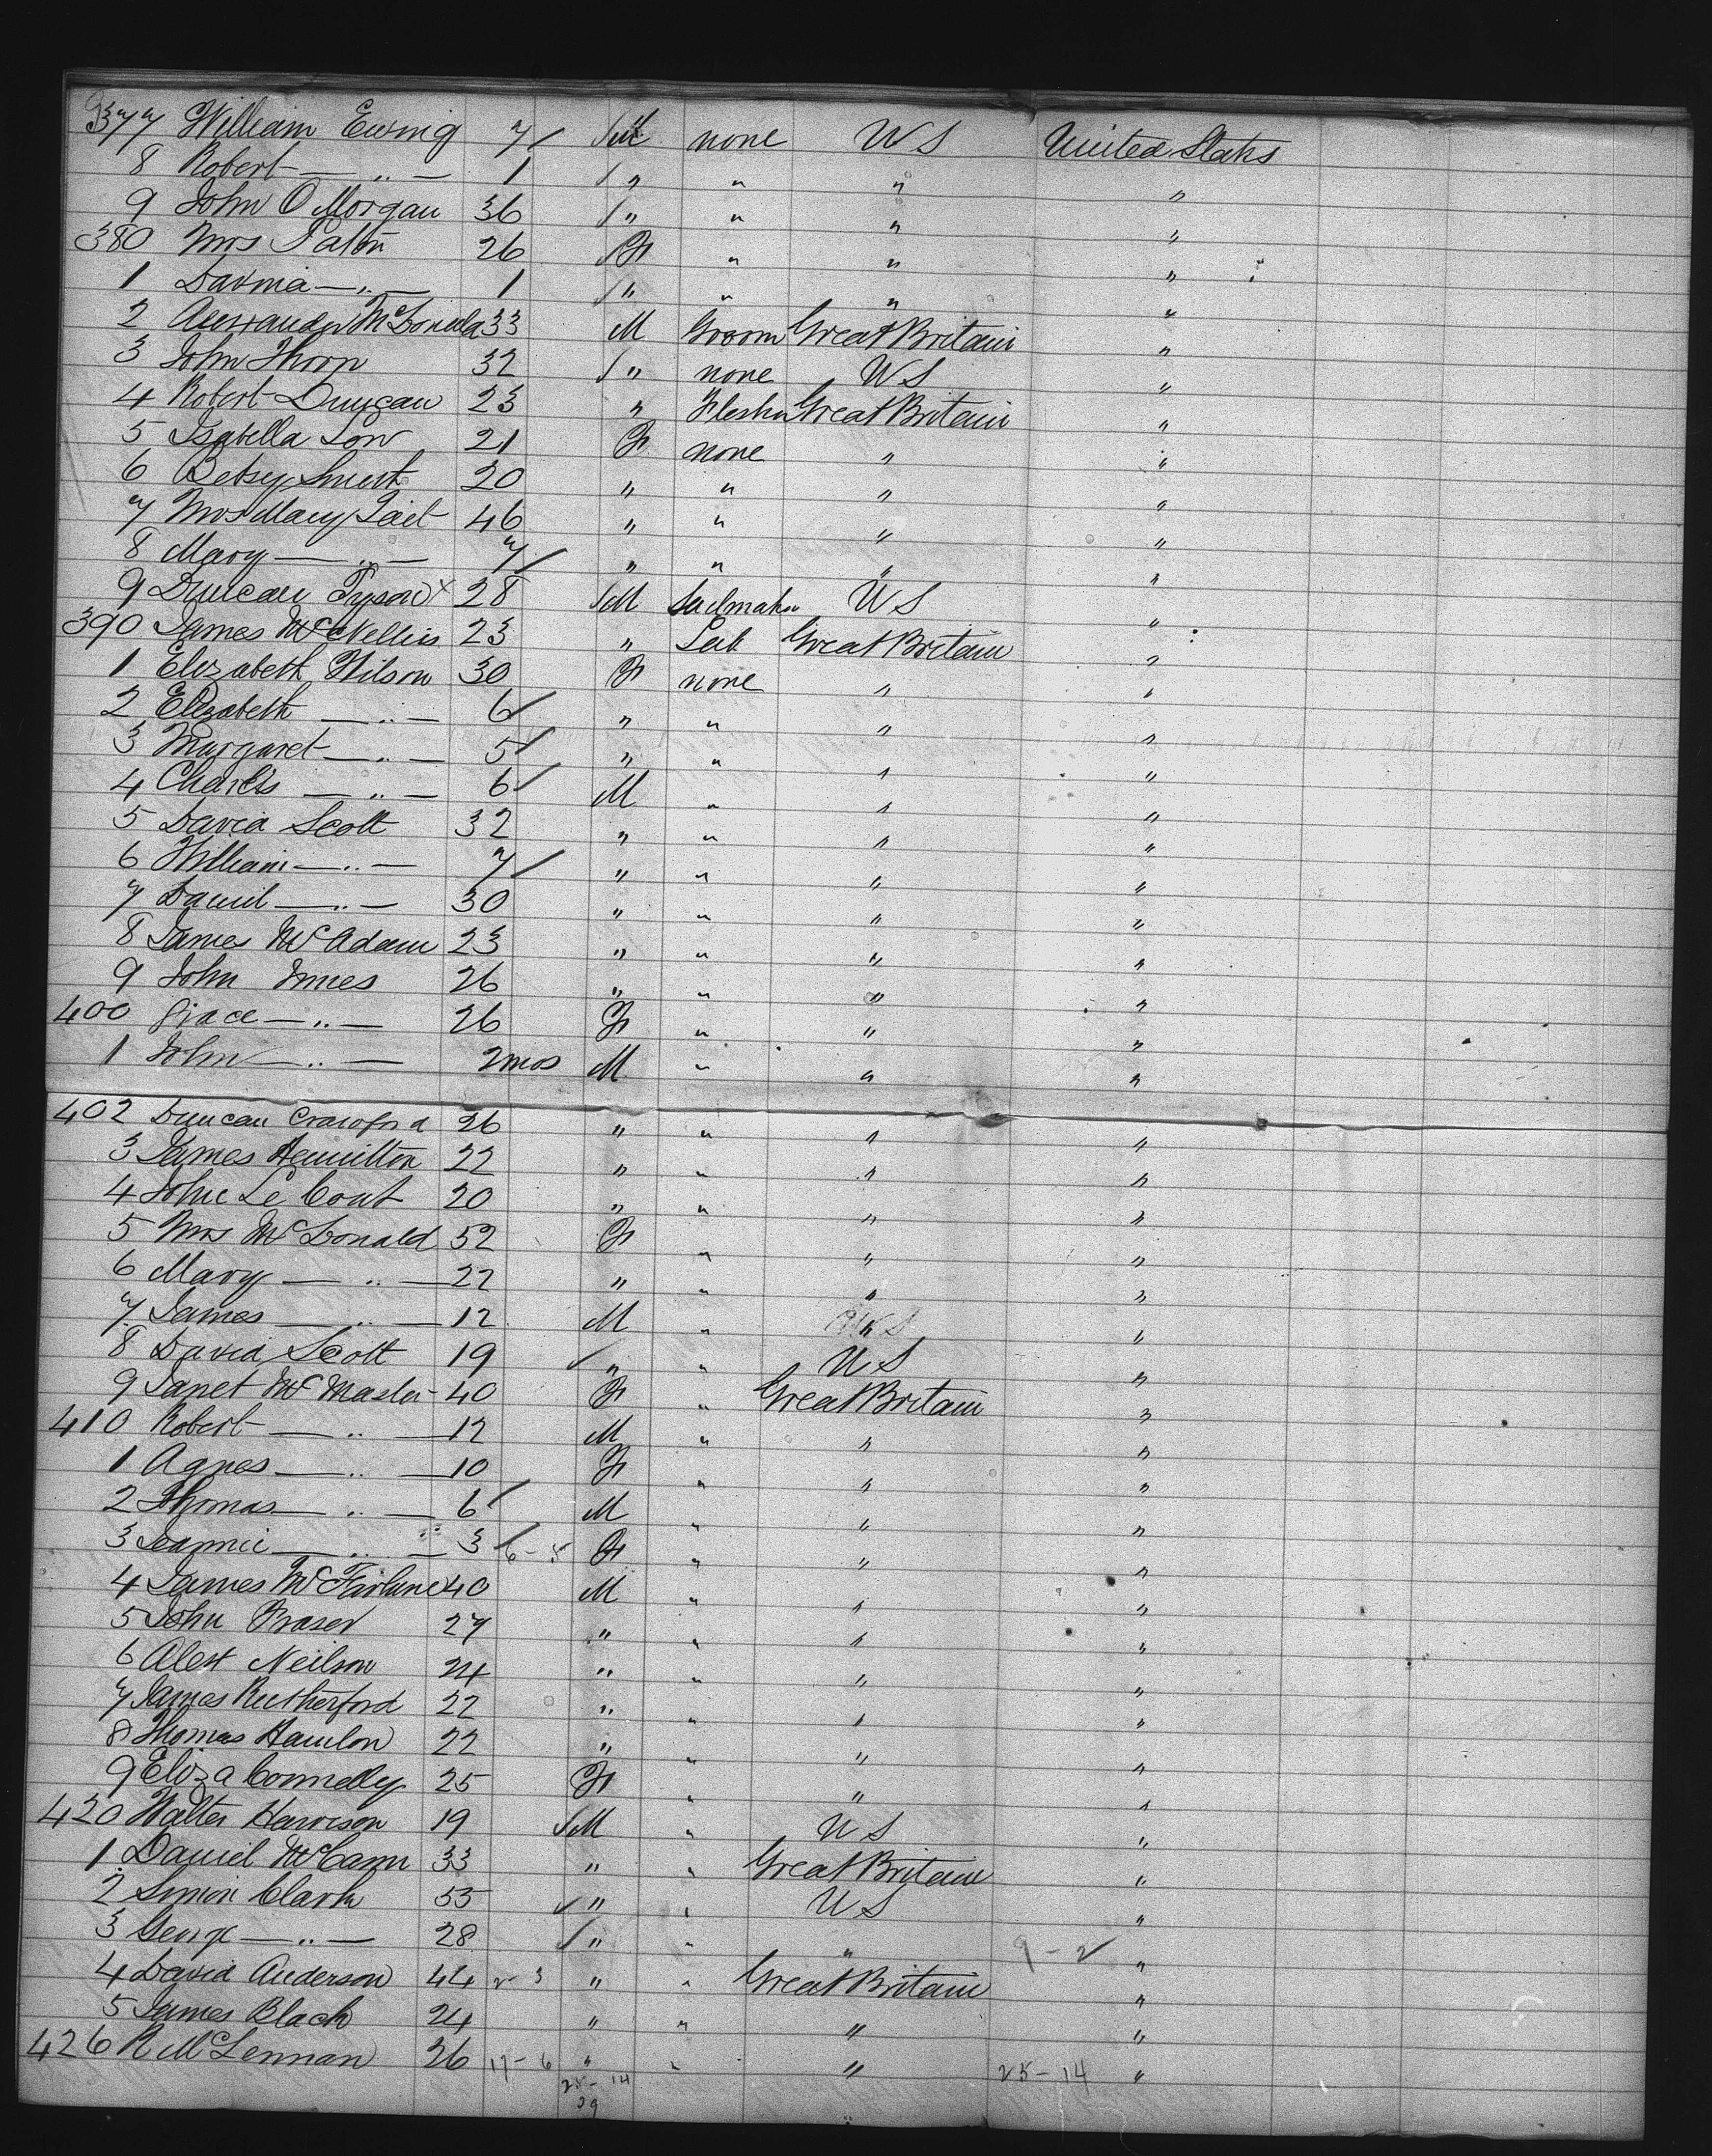 377 William Ewing 7 M none US United States
8 Robert — " — 1 " " " "
9 John O Morgan 36 " " " "
380 Mrs Paton 26 F " " "
1 Davina — " — 1 " " " "
2 Alexander McDonald 33 M Groom Great Britain "
3 John Thorn 32 " none US "
4 Robert Duncan 23 " Flesher Great Britain "
5 Isabella Low 21 F none " "
6 Betsy Smart 20 " " " "
7 Mrs Mary Tait 46 " " " "
8 Mary — " — 7 " " " "
9 Duncan Tyson 28 M Sailmaker US "
390 James McNellis 23 " Lab Great Britain "
1 Elizabeth Wilson 30 F none " "
2 Elizabeth — " — 6 " " " "
3 Margaret — " — 5 " " " "
4 Charles — " — 6 M " " "
5 David Scott 32 " " " "
6 William — " — 7 " " " "
7 Daniel — " — 30 " " " "
8 James McAdam 23 " " " "
9 John Innes 26 " " " "
400 Grace — " — 26 F " " "
1 John — " — 2mos M " " "
402 Duncan Crawford 26 " " " "
3 James Hamilton 22 " " " "
4 John Le Cout 20 " " " "
5 Mrs McDonald 52 F " " "
6 Mary — " — 22 " " " "
7 James — " — 12 M " " "
8 David Scott 19 " " US "
9 Janet McMaster 40 F " Great Britain "
410 Robert — " — 12 M " " "
1 Agnes — " — 10 F " " "
2 Thomas — " — 6 M " " "
3 Jeannie — " — 3 6-5 F " " "
4 James McFarlane 40 M " " "
5 John Fraser 27 " " " "
6 Alexr Neilson 24 " " " "
7 James Rutherford 22 " " " "
8 Thomas Hanlon 22 " " " "
9 Eliza Connelly 25 F " " "
420 Walter Harrison 19 M " US "
1 Daniel McCann 33 " " Great Britain "
2 Simon Clark 55 " " US "
3 George — " — 28 " " " 9-2 "
4 David Anderson 44 2-3 " " Great Britain "
5 James Black 24 " " " "
426 R McLennan 26 17-6 " " " 25-14 "
25-14
39